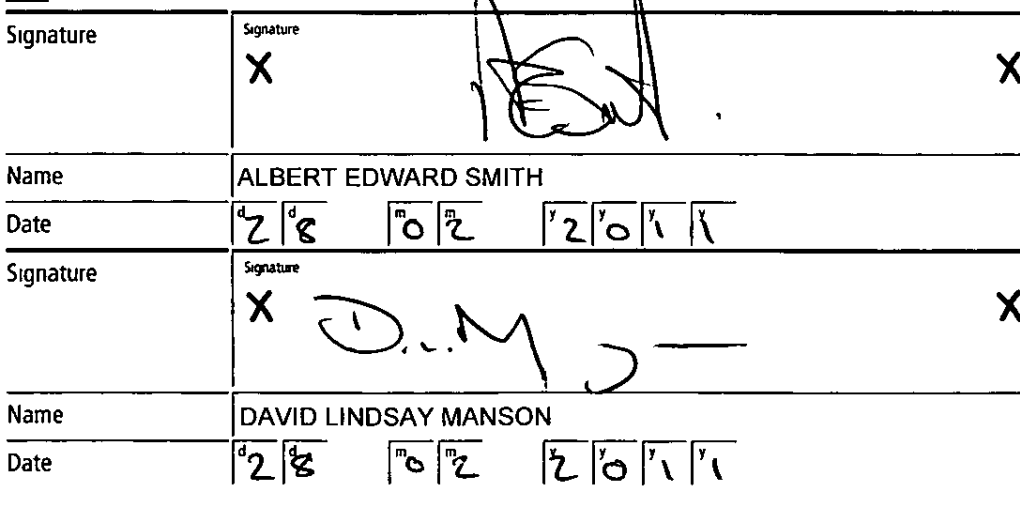 Signature Signature
X X
Name ALBERT EDWARD SMITH
Date d2 d8 m0 m2 y2 y0 y1 y1
Signature Signature
X X
D...M
Name DAVID LINDSAY MANSON
Date d2 d8 m0 m2 y2 y0 y1 y1